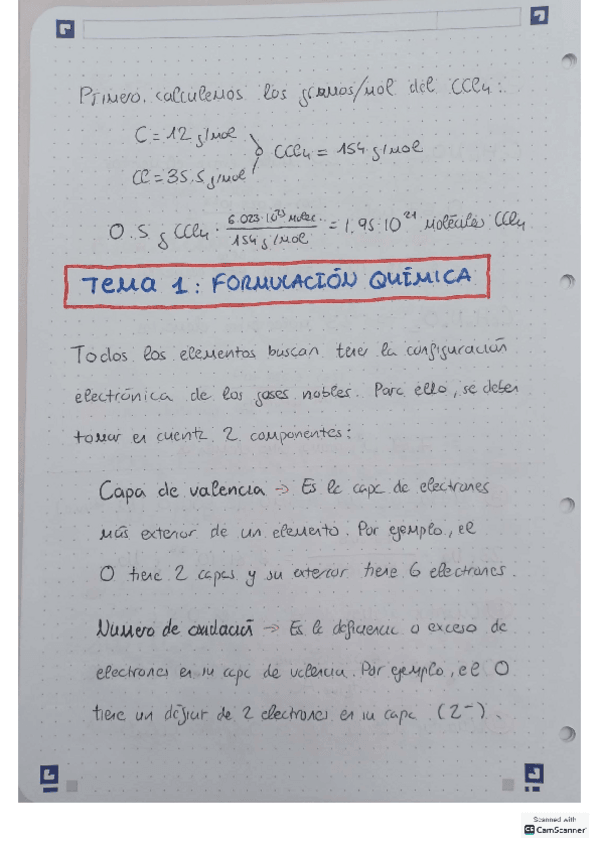 Primero, calculemos los gramos/mol del CCl4:
C = 12 g/mol
Cl = 35.5 g/mol
CCl4 = 154 g/mol
0.5 g CCl4 · 6.023·10²³ molec. / 154 g/mol = 1.95·10²¹ moléculas CCl4
TEMA 1: FORMULACIÓN QUÍMICA
Todos los elementos buscan tener la configuración
electrónica de los gases nobles. Para ello, se deben
tomar en cuenta 2 componentes:
Capa de valencia → Es la capa de electrones
más exterior de un elemento. Por ejemplo, el
O tiene 2 capas y su exterior tiene 6 electrones.
Número de oxidación → Es la deficiencia o exceso de
electrones en su capa de valencia. Por ejemplo, el O
tiene un déficit de 2 electrones en su capa (2-).
Scanned with
CS CamScanner